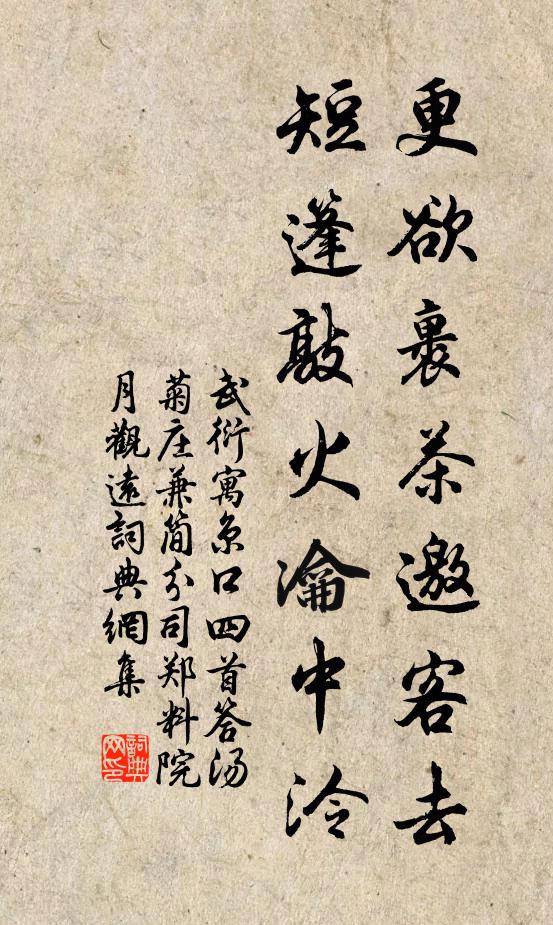 更欲裹茶邀客去
短蓬敲火瀹中泠
武衍寓京口四首答汤
菊庄兼简分司郑料院
月觀遠詞典網集
詞典網印